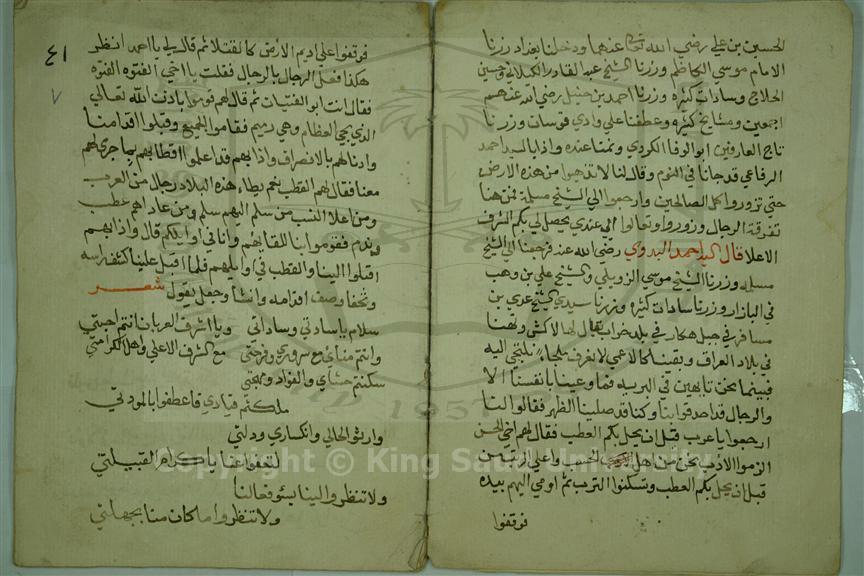 الحسين بن علي رضي الله تعالى عنهما ودخلنا بغداد زرنا
الامام موسي الكاظم وزرنا الشيخ عبد القادر الكيلاني وحسين
الحلاج وسادات كثيره وزرنا احمد بن حنبل رضي الله عنهم
اجمعين ومشايخ كثيره وعطفنا علي وادي قوسات وزرنا
تاج العارفين ابو الوفا الكردي ونمنا عنده واذا بالسيد احمد
الرفاعي قد جانا في النوم وقال لنا لا تذهبوا من هذه الارض
حتي تزوروا كل الصالحين وارجعوا الي الشيخ مسلمة فمن هنا
تفرقة الرجال وزوروا وتعالوا الي عندي يحصل لي بكم الشرف
الاعلا قال السيد احمد البدوي رضي الله عنه فرجعنا الي الشيخ
مسلمه وزرنا الشيخ موسي الزويلي والشيخ علي بن وهب
في البازار وزرنا سادات كثيره وزرنا سيدي الشيخ عدي بن
مسافر في جبل هكار في بلد خراب يقال لها لاكش وتهنا
في بلاد العراق وبقينا كالاعمي لا نعرف ملجاء نلتجي اليه
فبينما نحن تايهين في البريه فما وعينا بانفسنا الا
والرجال قد احدقوا بنا وكنا قد صلينا الظهر فقالوا لنا
ارجعوا يا عرب قبل ان يحل بكم العطب فقال لهم اخي الحسن
الزموا الادب نحن من اهل الحسب واعلي
قبل ان يحل بكم العطب وتسكنوا الترب ثم اومي اليهم بيده
فوقفوا
٤١
٧
فوقفوا علي اديم الارض كالقتلا ثم قال لي يا احمد انظر
هكذا فعل الرجال بالرجال فقلت يا اخي الفتوه الفتوه
فقال انت ابو الفتيان ثم قال لهم قوموا باذن الله تعالي
الذي يحي العظام وهي رميم فقاموا الجميع وقبلوا اقدامنا
واذنا لهم بالانصراف واذا بهم قد اعلموا اقطابهم بما جري لهم
معنا فقال لهم القطب نعم بطاء هذه البلاد رجال من العرب
ومن اعلا النسب من سلم اليهم سلم ومن عاداهم عطب
وندم فقوموا بنا للقابهم واناتي اوايلكم قال واذا بهم
اقبلوا الينا والقطب في اوايلهم فلما اقبل علينا كشف راسه
وتحفا وصف اقدامه وانشأ وجعل يقول شعر
سلام يا سادتي وساداتي ويا اشرف العربان انتم احبتي
وانتم منائي مع سروري وفرحتي مع الشرف الاعلي واهل الكرامتي
سكنتم حشاي والفواد ومهجتي
ملكتم قيادي فاعطفوا بالمودتي
وارثو لحالي وانكساري وذلتي
لتعفوا عنا يا كرام القبيلتي
ولا تنظروا الينا بسوء فعالنا
ولا تنظروا ما كان منا بجهلتي
Copyright © King Saud University
1957